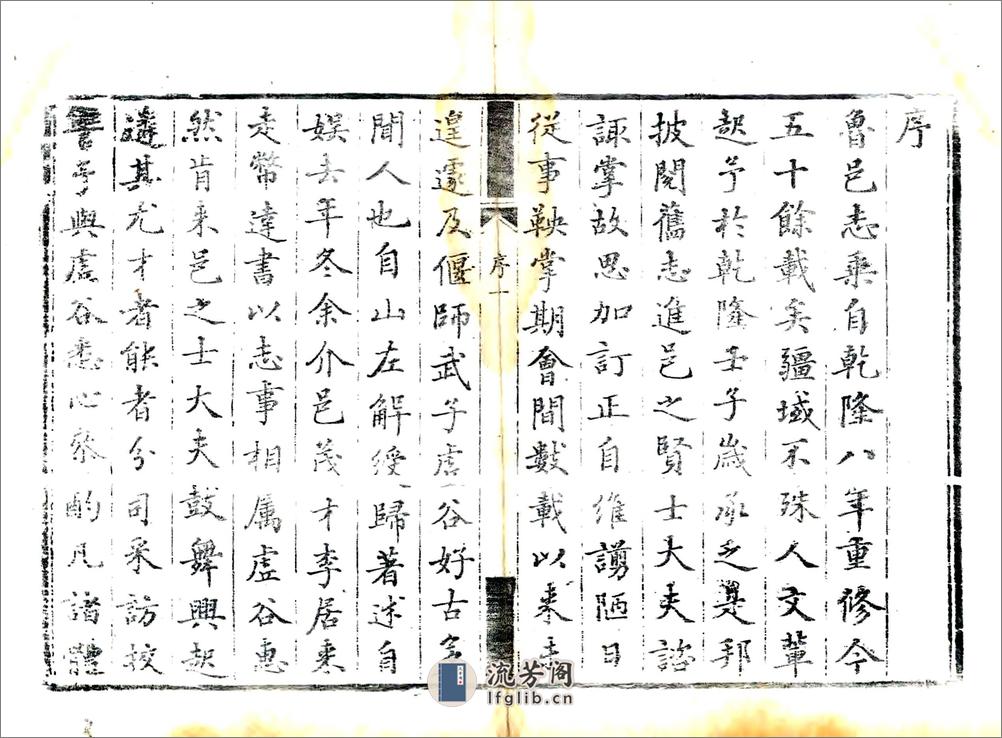 序
魯邑志乘自乾隆八年重修今
五十餘載矣疆域不殊人文輩
起予於乾隆壬子歲承乏是邦
披閱舊志進邑之賢士大夫諮
諏掌故思加訂正自維謭陋日
從事鞅掌期會間數載以來未
序一
遑遽及偃師武子虛谷好古多
聞人也自山左解綬歸著述自
娛去年冬余介邑茂才李居來
走幣達書以志事相属虛谷惠
然肯来邑之士大夫鼓舞興起
遴其尤才者能者分司采訪校
予與虛谷悉心參酌凡諸體
流芳阁
lfglib.cn